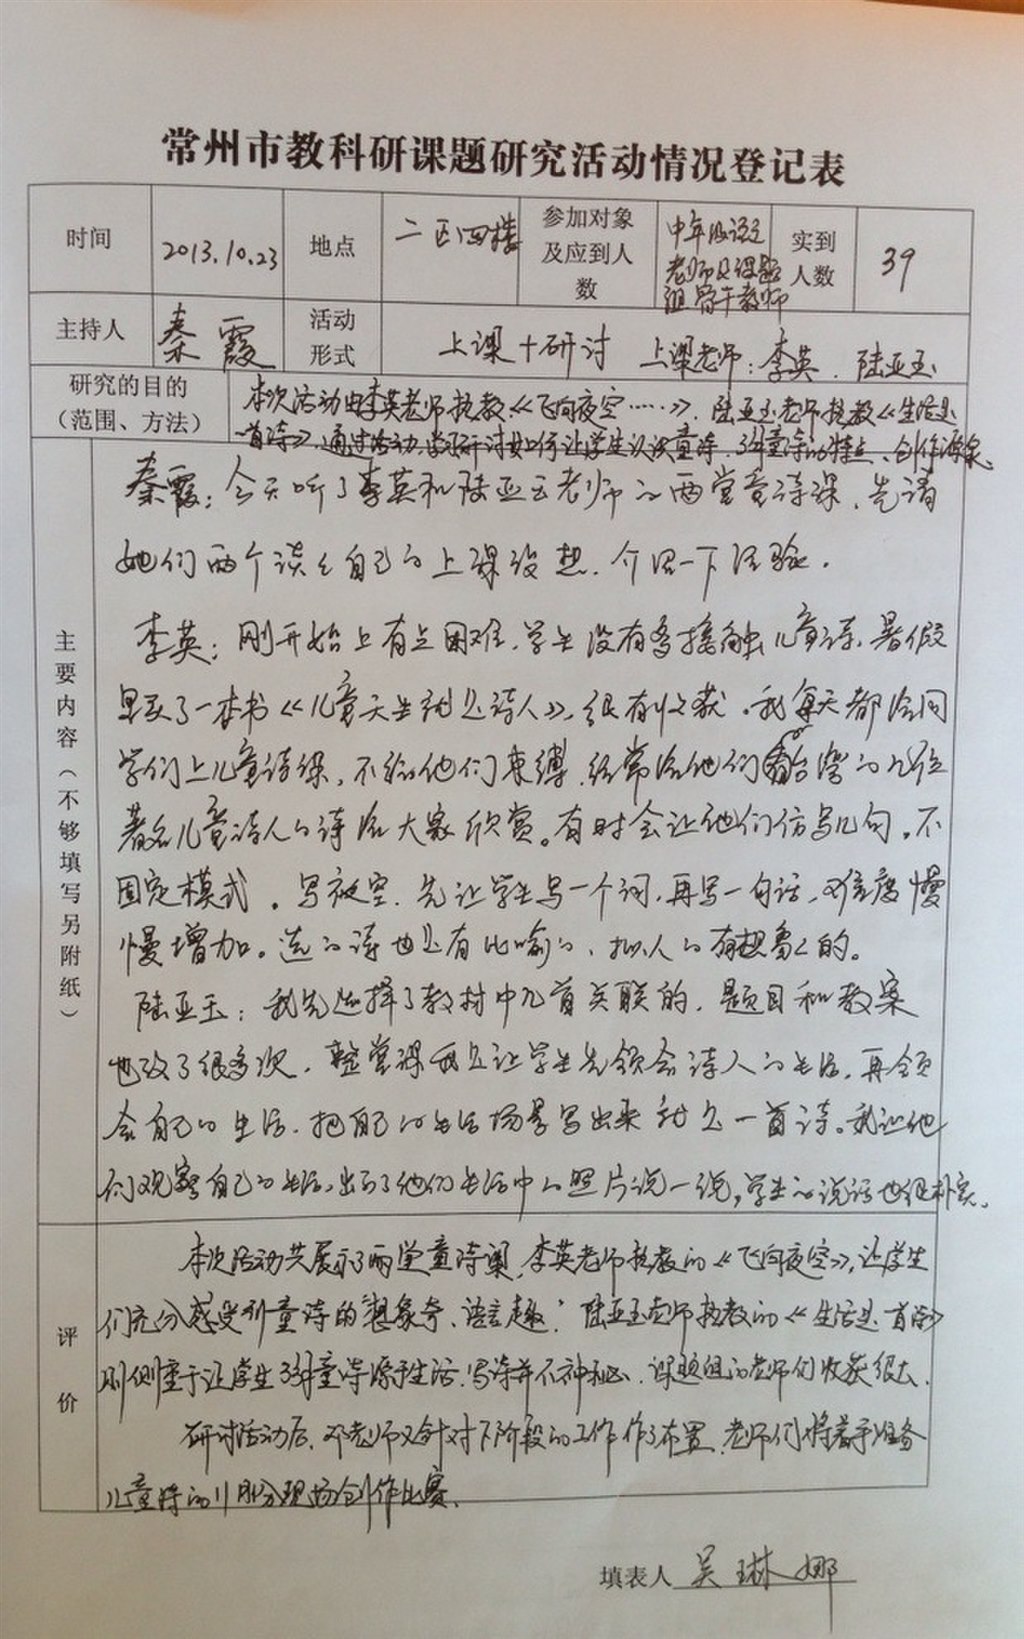 常州市教科研课题研究活动情况登记表
时间 2013.10.23 地点 二区四楼 参加对象及应到人数 中年级语文老师及课题组骨干教师 实到人数 39
主持人 秦霞 活动形式 上课+研讨 上课老师：李英、陆亚玉
研究的目的（范围、方法） 本次活动由李英老师执教《飞向夜空……》，陆亚玉老师执教《生活是
一首诗》，通过活动，学习研讨如何让学生认识童诗，了解童诗的特点、创作源泉
主要内容（不够填写另附纸）
秦霞：今天听了李英和陆亚玉老师的两堂童诗课，先请
她们两个谈谈自己的上课设想，介绍一下经验。
李英：刚开始上有点困难，学生没有多接触儿童诗，暑假
里买了一本书《儿童天生就是诗人》，很有收获。我每天都给同
学们上儿童诗课，不给他们束缚，经常给他们看台湾的几位
著名儿童诗人的诗给大家欣赏。有时会让他们仿写几句，不
固定模式。写夜空，先让学生写一个词，再写一句话，难度慢
慢增加。选的诗也是有比喻的、拟人的有想象的。
陆亚玉：我先选择了教材中几首关联的，题目和教案
也改了很多次，整堂课我是让学生先领会诗人的生活，再领
会自己的生活，把自己的生活场景写出来就是一首诗。我让他
们观察自己的生活，出示了他们生活中的照片说一说，学生的说话也很朴实。
评价
本次活动共展示了两堂童诗课，李英老师执教的《飞向夜空》，让学生
们充分感受到童诗的“想象奇、语言趣”，陆亚玉老师执教的《生活是一首诗》
则侧重于让学生了解童诗源于生活，写诗并不神秘，课题组的老师们收获很大。
研讨活动后，邓老师又针对下阶段的工作作了布置，老师们将着手准备
儿童诗的11月份现场创作比赛。
填表人 吴琳娜